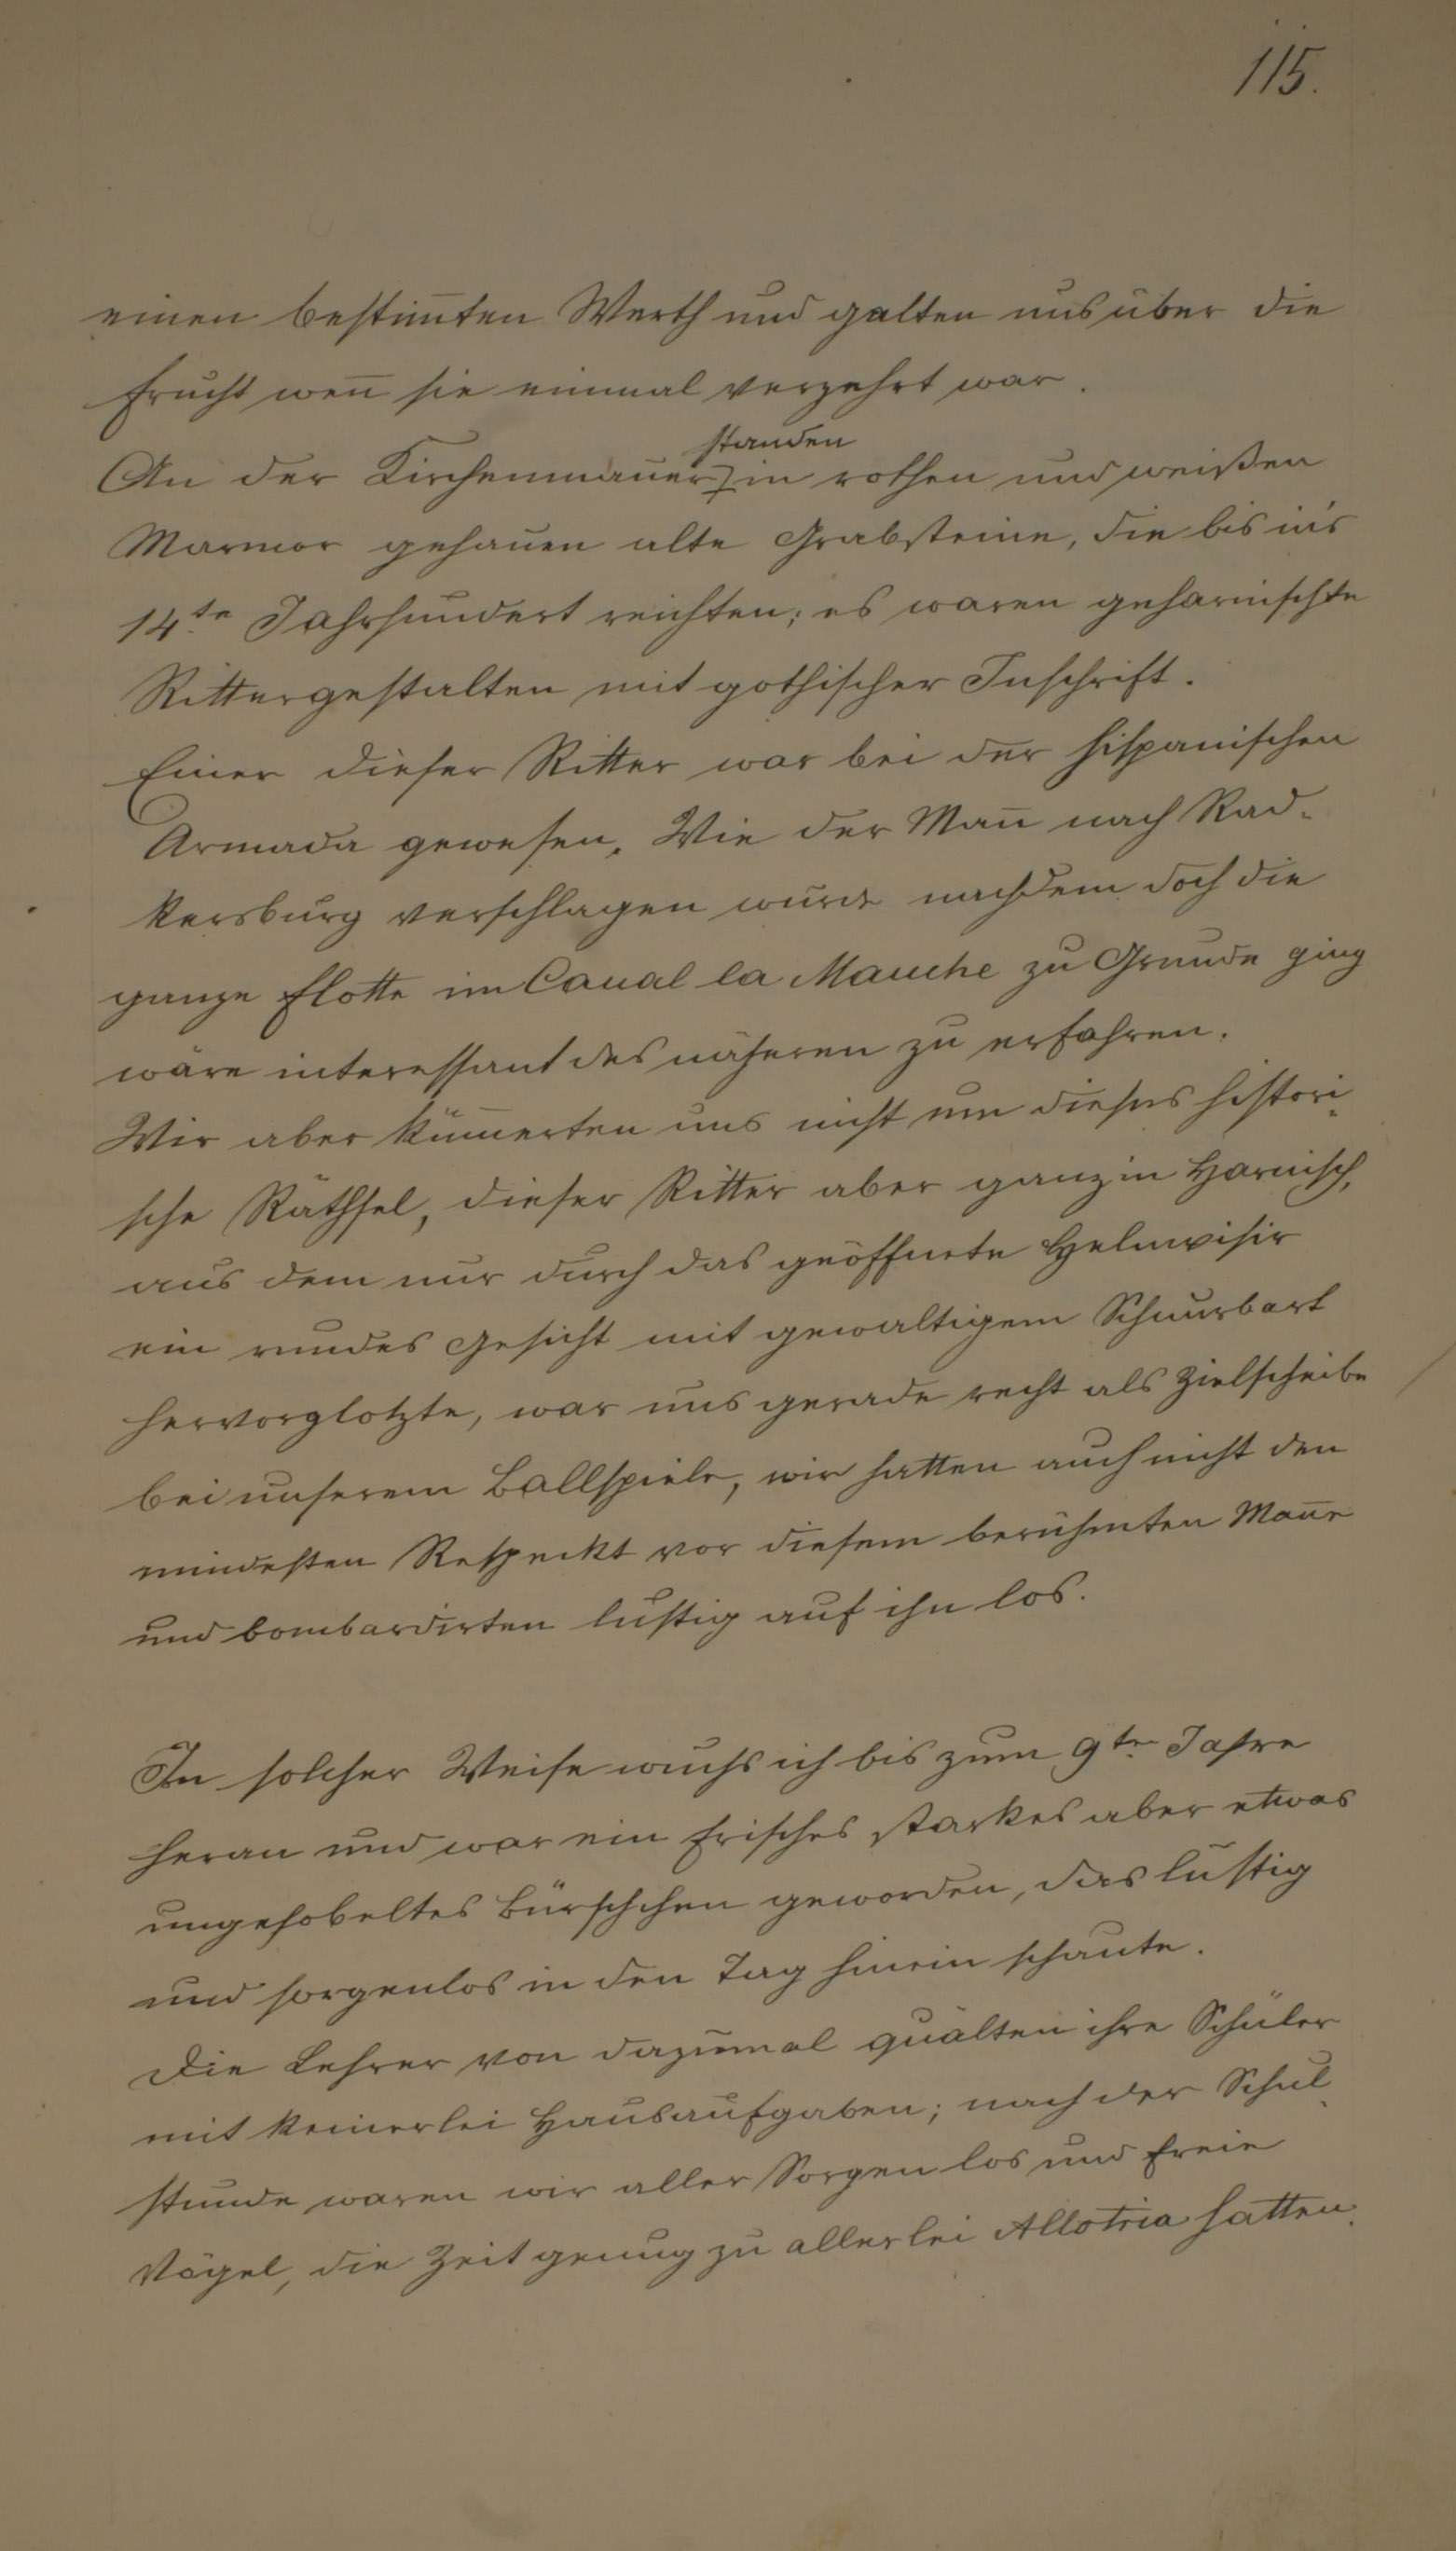 115.
einen bestim̅ten Werth und galten uns über die
Frucht wen̅ sie einmal verzehrt war.
standen
An der Kirchenmauer in rothen und weißen
Marmor gehauen alte Grabsteine, die bis in's
14te Jahrhundert reichten; es waren geharnischte
Rittergestalten mit gothischer Inschrift.
Einer dieser Ritter war bei der hispanischen
Armada gewesen. Wie der Man̅ nach Rad-
kersburg verschlagen wurde nachdem doch die
ganze Flotte im Canal la Manche zu Grunde ging
wäre interessant des näheren zu erfahren.
Wir aber küm̅erten uns nicht um dieses histori-
sche Räthsel, dieser Ritter aber ganz in Harnisch,
aus dem nur durch das geöffnete Helmvisir
ein rundes Gesicht mit gewaltigem Schnurbart
hervorglotzte, war uns gerade recht als Zielscheibe
bei unserem Ballspiele, wir hatten auch nicht den
mindesten Respeckt vor diesem berühmten Man̅e
und bombardirten lustig auf ihn los.
In solcher Weise wuchs ich bis zum 9te Jahre
heran und war ein frisches starkes aber etwas
ungehobeltes Bürschchen geworden, das lustig
und sorgenlos in den Tag hinein schaute.
Die Lehrer von dazumal quälten ihre Schüler
mit keinerlei Hausaufgaben; nach der Schul-
stunde waren wir aller Sorgen los und freie
Vögel, die Zeit genug zu allerlei Allotria hatten.